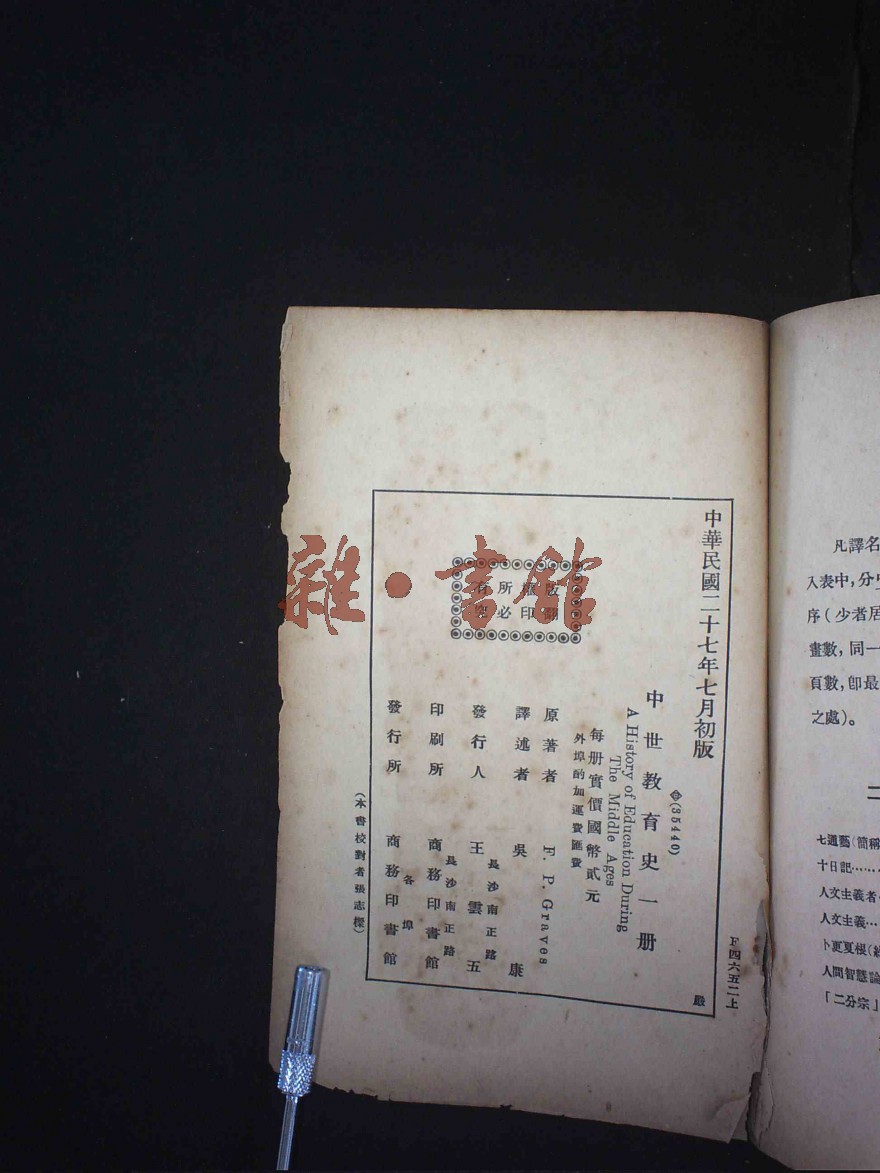 中華民國二十七年七月初版
(35440)
中世教育史一册
A History of Education During
The Middle Ages
每册實價國幣貳元
外埠酌加運費匯費
版權所有
翻印必究
原著者 F. P. Graves
譯述者 吳康
長沙南正路
發行人 王雲五
長沙南正路
印刷所 商務印書館
各埠
發行所 商務印書館
(本書校對者張志樑)
F四六五二上
嚴
雜·書館
凡譯名
入表中，分
序（少者居
畫數，同一
頁數，卽最
之處）。
二
七通藝（簡稱
十日記……
人文主義者
人文主義…
卜更夏根
人間智慧論
「二分宗」